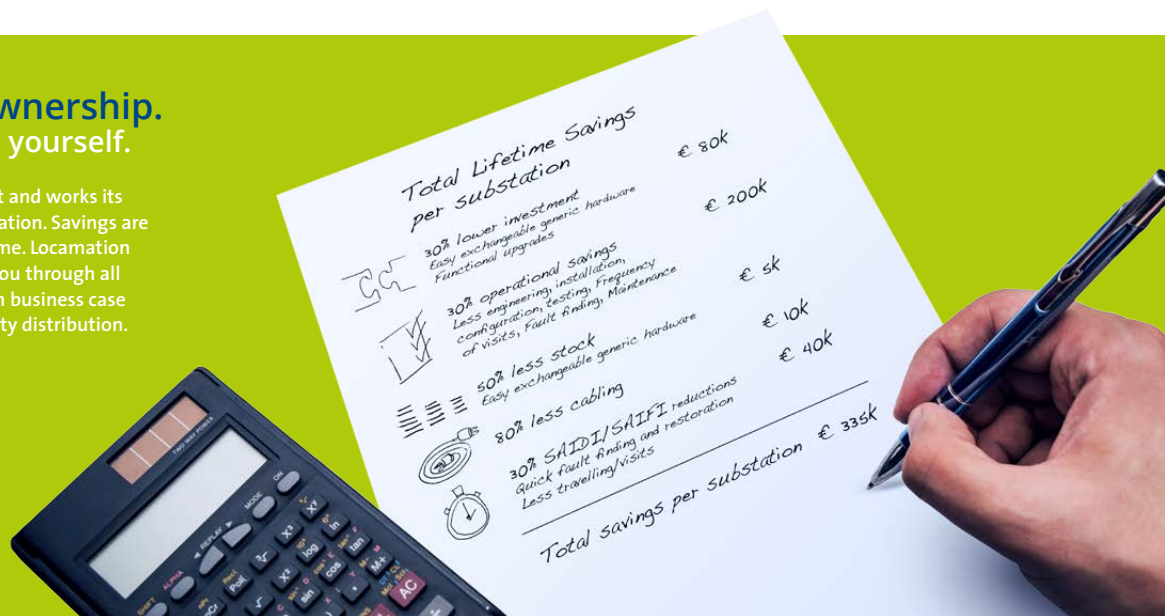 wnership.
yourself.
t and works its
ation. Savings are
me. Locamation
ou through all
n business case
ty distribution.
Total Lifetime Savings
per substation
30% lower investment € 80k
Easy exchangeable generic hardware
Functional upgrades
30% operational savings € 200k
Less engineering, installation,
configuration, testing, Frequency
of visits, Fault finding, Maintenance
50% less stock € 5k
Easy exchangeable generic hardware
80% less cabling € 10k
30% SAIDI/SAIFI reductions € 40k
Quick fault finding and restoration
Less travelling/visits
Total savings per substation € 335k
TWO WAY POWER
SHIFT ALPHA REPLAY MODE ON
Pol( ³√ x³ x^y
√ x² log ln
sin cos tan
M+
AC